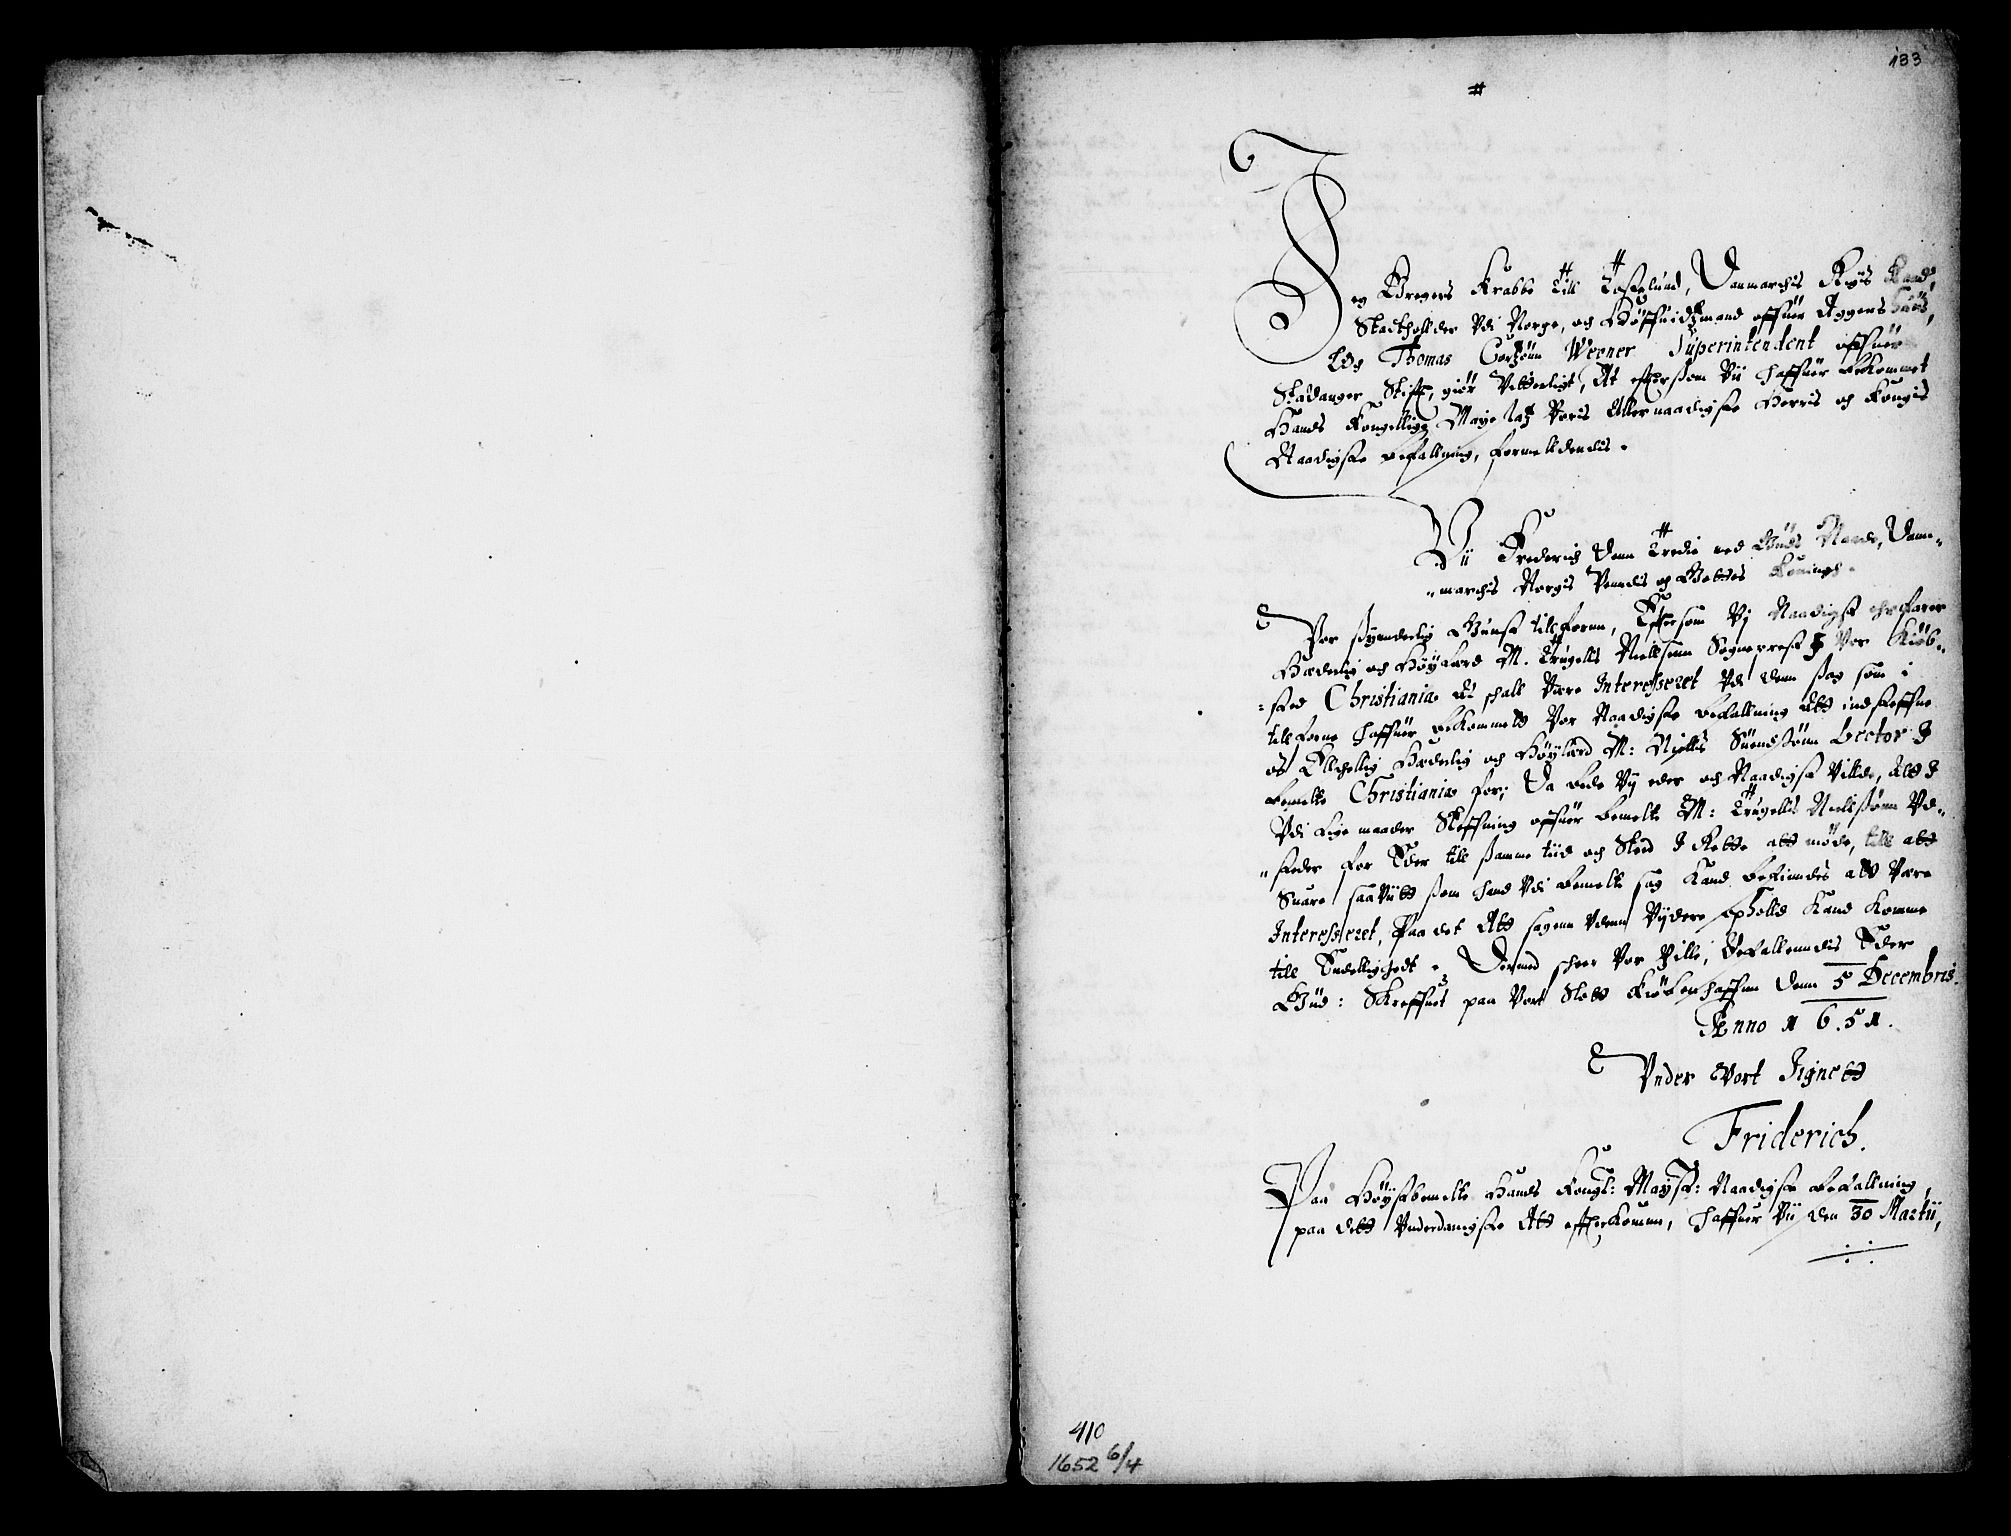 133
Jeg Gregers Krabbe till Tostelund, Danmarchis Rigs Raad,
Statholder Vdi Norge, och Höffuidtzmand offuer Aggershuus,
Och Thomas Cortzönn Wegner Superintendent offuer
Stauanger Stifft, giör Vitterligt, At effterssom Vii haffuer bekommet
Hands Kongellige Mayetatz Voris Allernaadigste Herris och Kongis
Naadigste befallning, formelldendis.
Vii Frederich denn Tredie med Guds Naade, Dann-
-marchis Norgis Venndis och Gottes Koningh.
Vor ssynderlig Gunst tillfornn, Efftersom Vj Naadigst erfarer
Hæderlig och Höylærd M. Trugells Niellsenn Sognepræst J Vor Kiöb-
-sted Christiania At schall Være Interesseret Vdi denn ssag som i
tillforne haffuer bekommett Vor Naadigste befallning Att indsteffne
os Ellschellig Hæderlig och Höylærd M: Niells Suendssönn Lector J
bemelte Christiania for; Da bede Vy eder och Naadigst Villde, Att J
Vdi lige maader Steffning offuer bemelte M: Trugells Niellssönn Vd-
-steder for Eder till ssamme tiid och Sted J Rette att möde, till att
Suare saa Viitt ssom hand Vdi bemelte sag Kand befindes att Være
Interesseret, Paa det Att sagenn vdenn Vydere opholld Kand Komme
till Endellighedt. Dermed scheer Vor Ville, Befallenndis Eder
Gud: Skreffuet paa Vort Slott Kiöbenhaffnn denn 5 Decembris.
Anno 1651.
Vnder Vort Signett
Friderich.
Paa Höystbemelte Hands Kongl: Mayst: Naadigste befallning,
paa dett Vnderdanigste Att effterkomme, haffuer Vii den 30 Martii,
410
1652 6/4